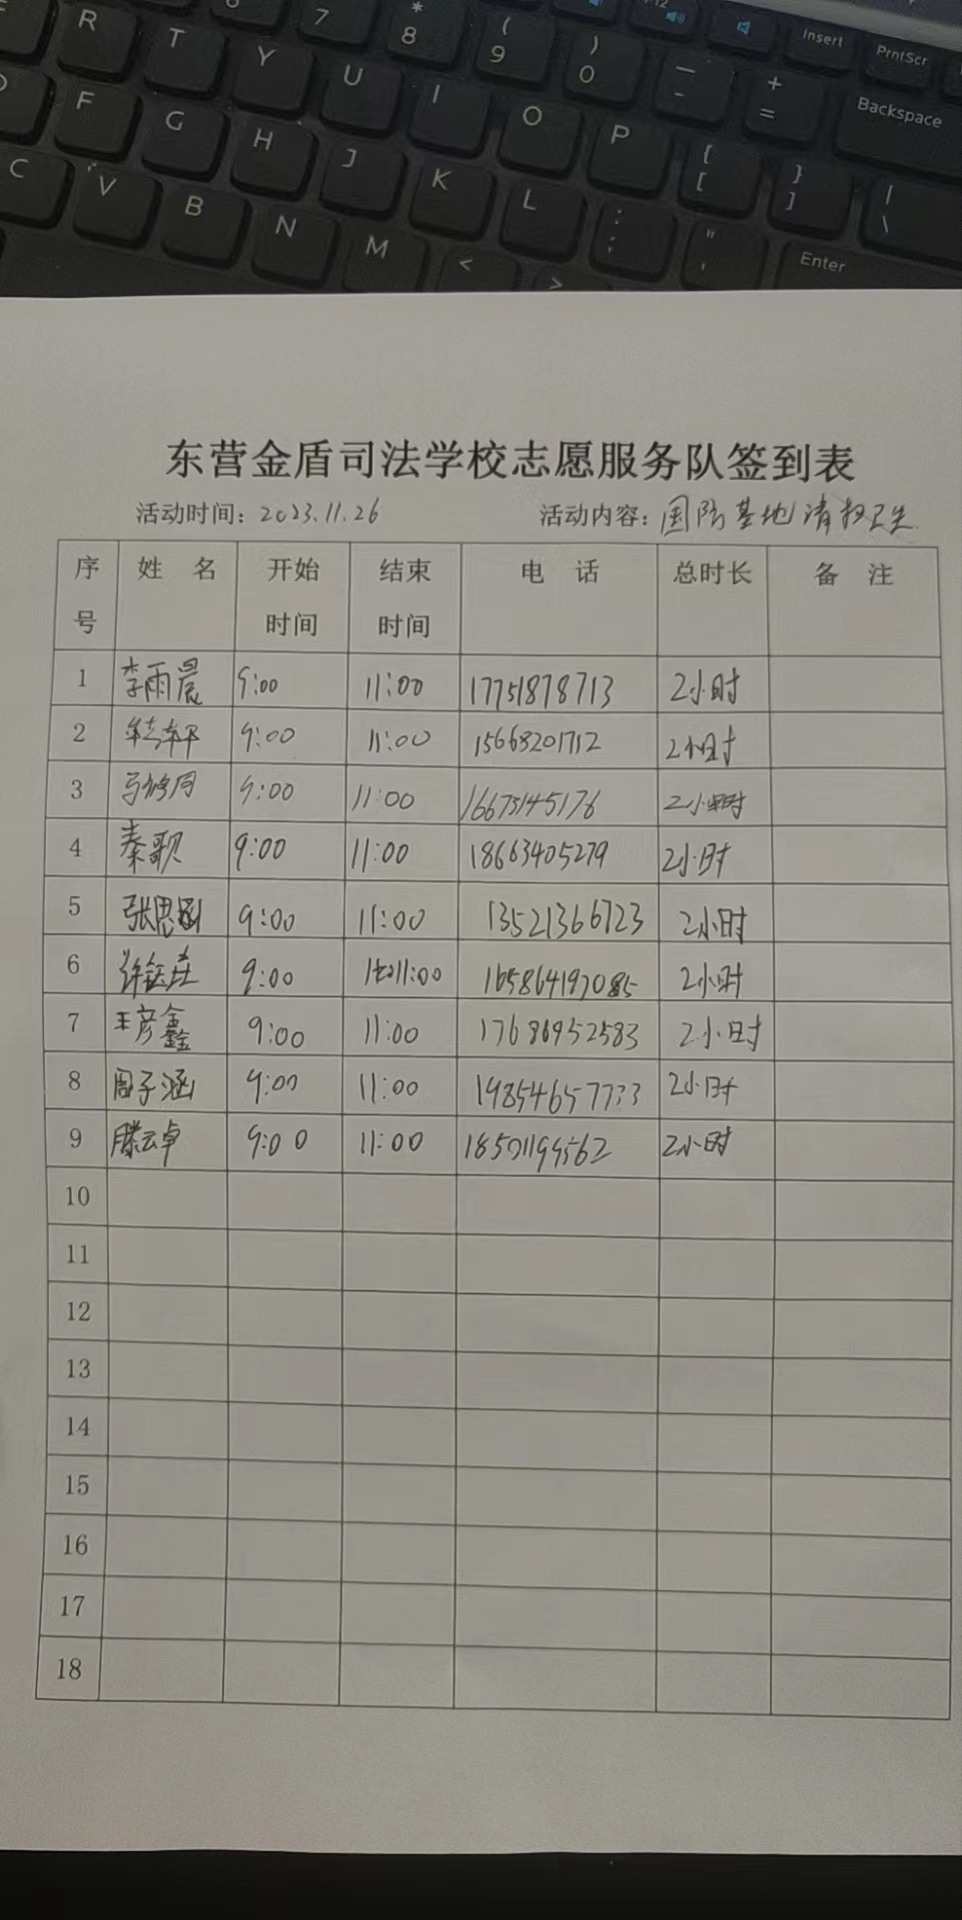 R T Y U I O P
7 * 8 ( 9 ) 0 — - + = Insert PrntScr
Backspace
F G H J K L
{ [ } ] | \
C V B N M < > : ; " ' Enter
东营金盾司法学校志愿服务队签到表
活动时间：2023.11.26 活动内容：国防基地清扫卫生
序号 姓 名 开始时间 结束时间 电 话 总时长 备 注
1 李雨晨 9:00 11:00 17751878713 2小时
2 9:00 11:00 15668201712 2小时
3 9:00 11:00 16675145176 2小时
4 秦歌 9:00 11:00 18663405279 2小时
5 张思涵 9:00 11:00 13521366723 2小时
6 9:00 11:00 2小时
7 王彦鑫 9:00 11:00 17686952583 2小时
8 周子涵 9:00 11:00 19854657733 2小时
9 滕云卓 9:00 11:00 2小时
10
11
12
13
14
15
16
17
18